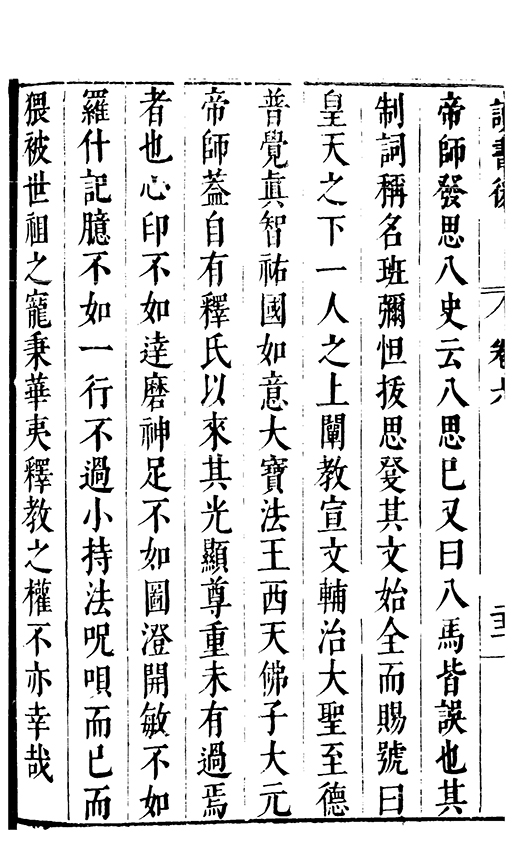 讀書後
卷六
帝師發思八史云八思巴又曰八馬皆誤也其
制詞稱名班彌怛拔思發其文始全而賜號曰
皇天之下一人之上闡教宣文輔治大聖至德
普覺眞智祐國如意大寶法王西天佛子大元
帝師蓋自有釋氏以來其光顯尊重未有過焉
者也心印不如達磨神足不如圖澄開敏不如
羅什記臆不如一行不過小持法呪唄而已而
猥被世祖之寵秉華夷釋教之權不亦幸哉